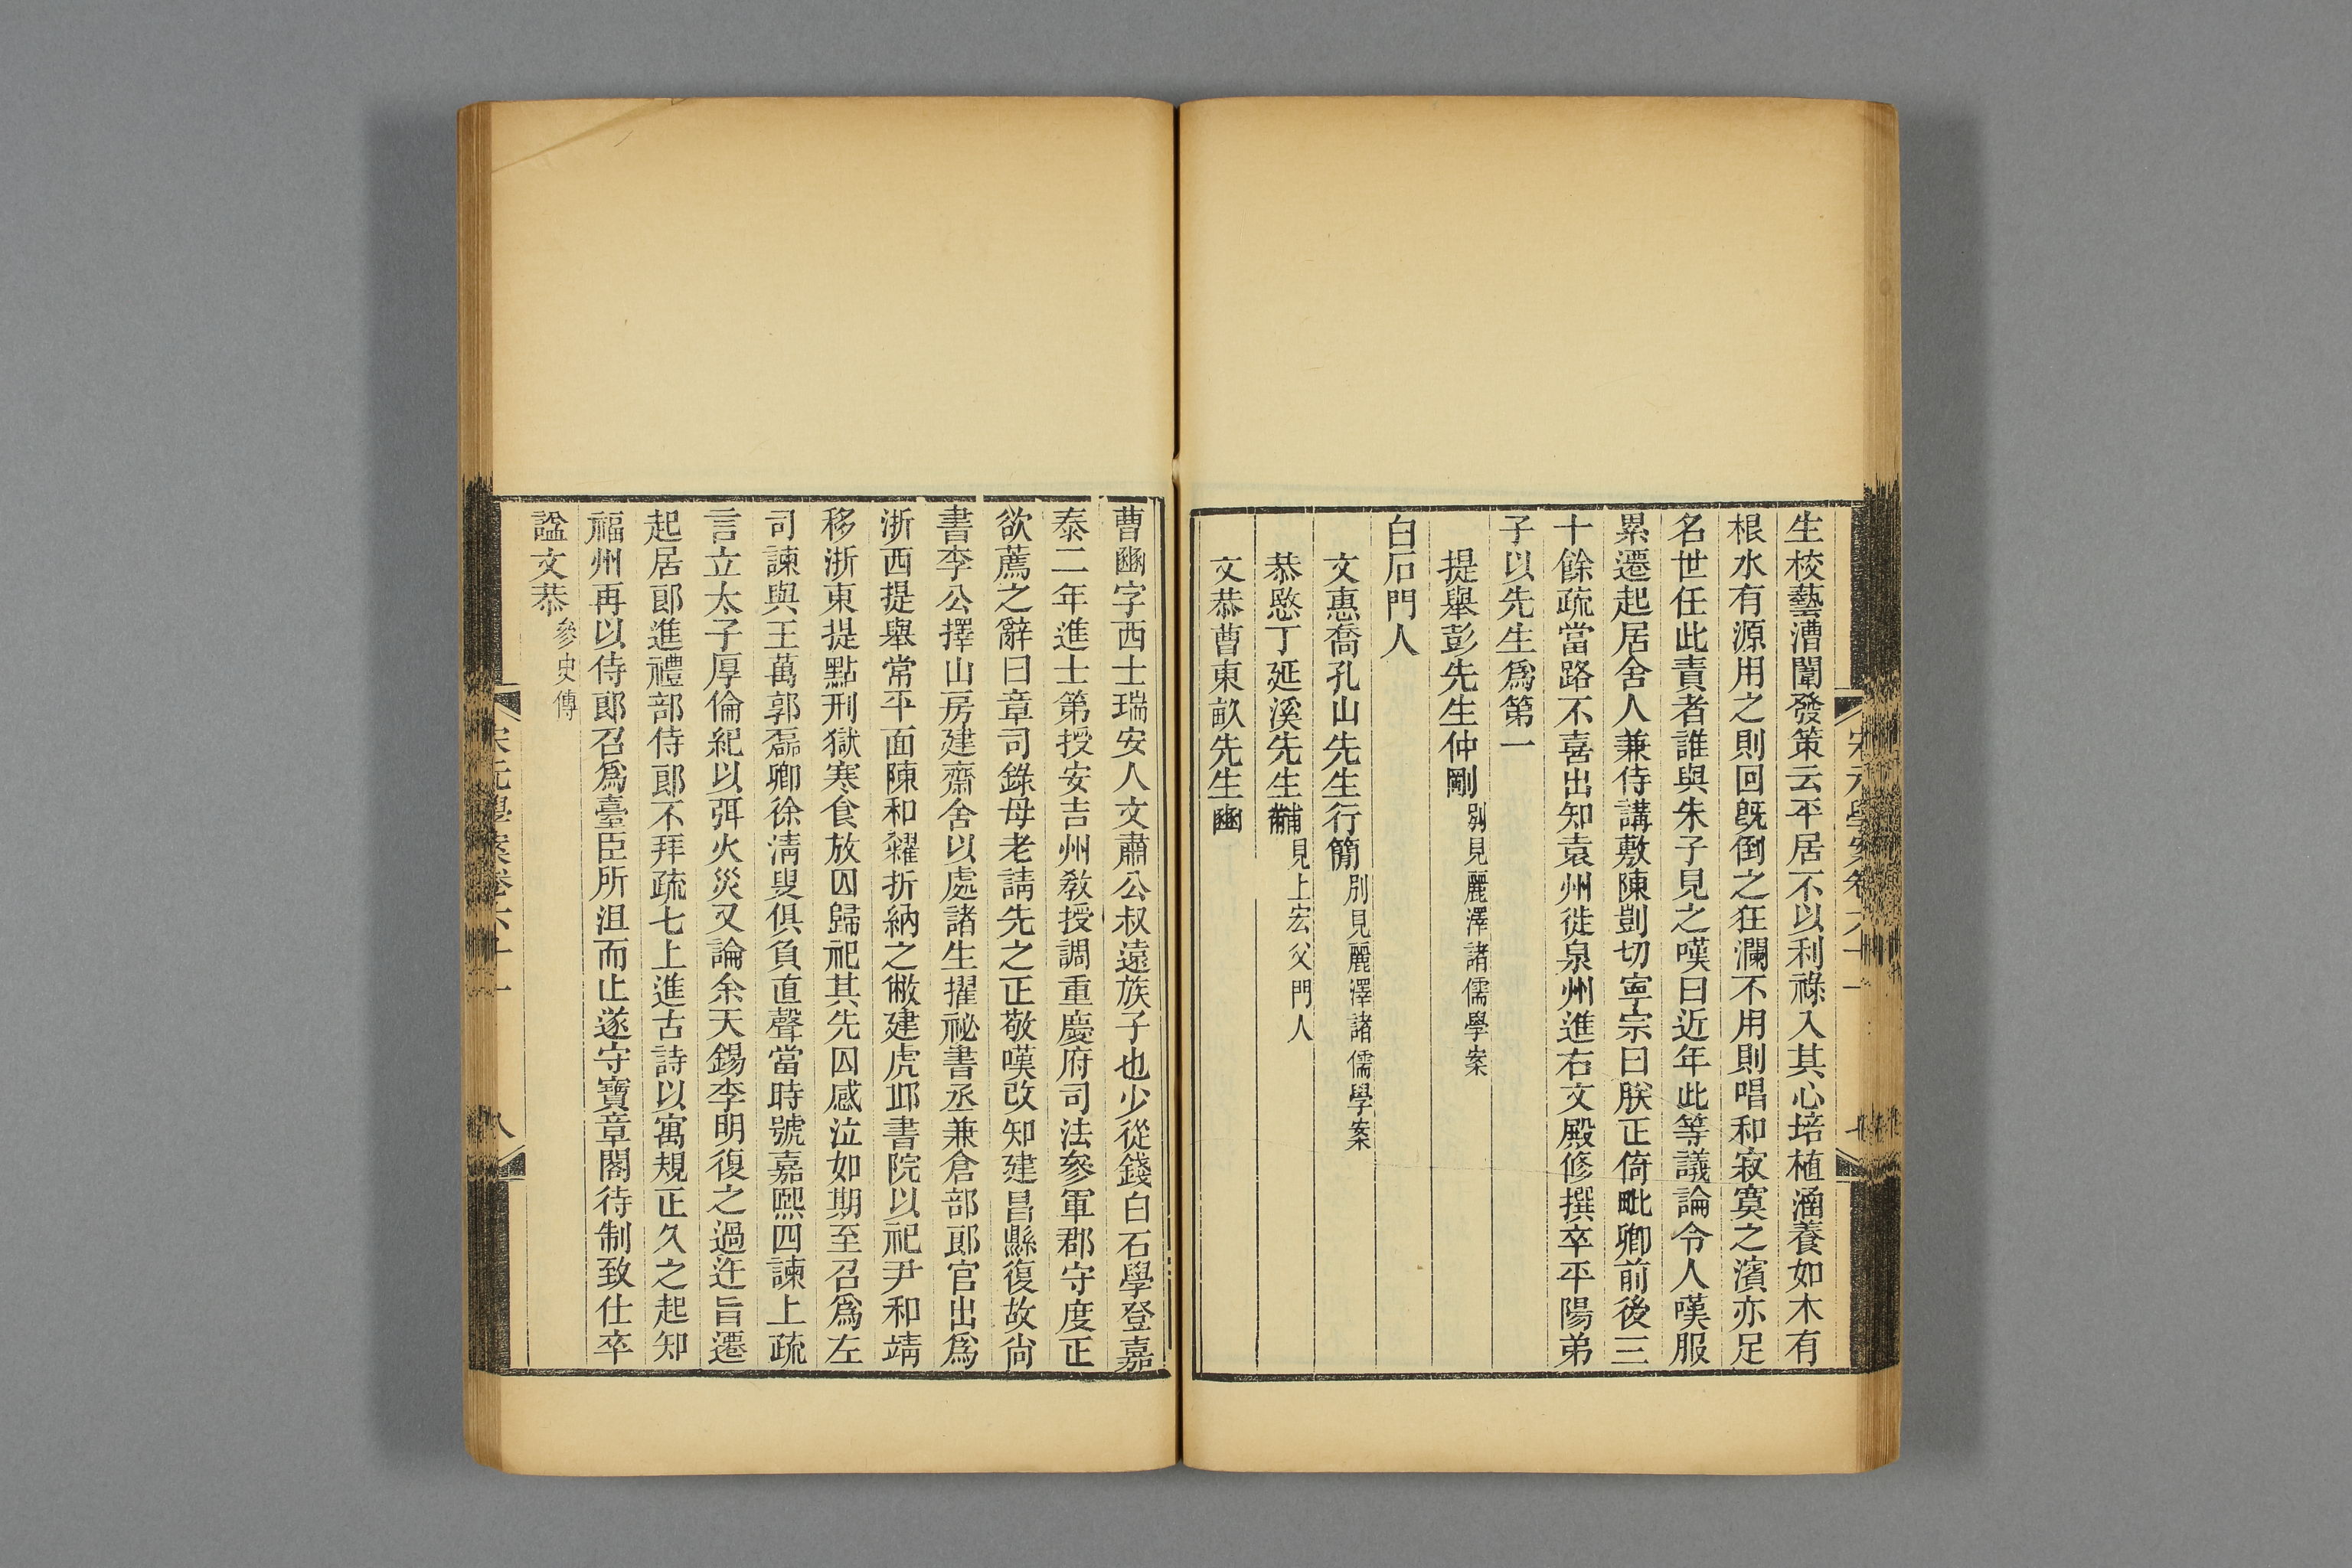 生校藝漕闈發策云平居不以利祿入其心培植涵養如木有
根水有源用之則回旣倒之狂瀾不用則唱和寂寞之濱亦足
名世任此責者誰與朱子見之嘆曰近年此等議論令人嘆服
累遷起居舍人兼侍講敷陳剴切寧宗曰朕正倚毗卿前後三
十餘疏當路不喜出知袁州徙泉州進右文殿修撰卒平陽弟
子以先生爲第一
提舉彭先生仲剛別見麗澤諸儒學案
白石門人
文惠喬孔山先生行簡別見麗澤諸儒學案
恭愍丁延溪先生黼見上宏父門人
文恭曹東畝先生豳
曹豳字西士瑞安人文肅公叔遠族子也少從錢白石學登嘉
泰二年進士第授安吉州敎授調重慶府司法參軍郡守度正
欲薦之辭曰章司錄母老請先之正敬嘆改知建昌縣復故尙
書李公擇山房建齋舍以處諸生擢祕書丞兼倉部郎官出爲
浙西提舉常平面陳和糴折納之敝建虎邱書院以祀尹和靖
移浙東提點刑獄寒食放囚歸祀其先囚感泣如期至召爲左
司諫與王萬郭磊卿徐淸叟俱負直聲當時號嘉熙四諫上疏
言立太子厚倫紀以弭火災又論余天錫李明復之過迕旨遷
起居郎進禮部侍郎不拜疏七上進古詩以寓規正久之起知
福州再以侍郎召爲臺臣所沮而止遂守寶章閣待制致仕卒
諡文恭參史傳
宋元學案卷六十一
八